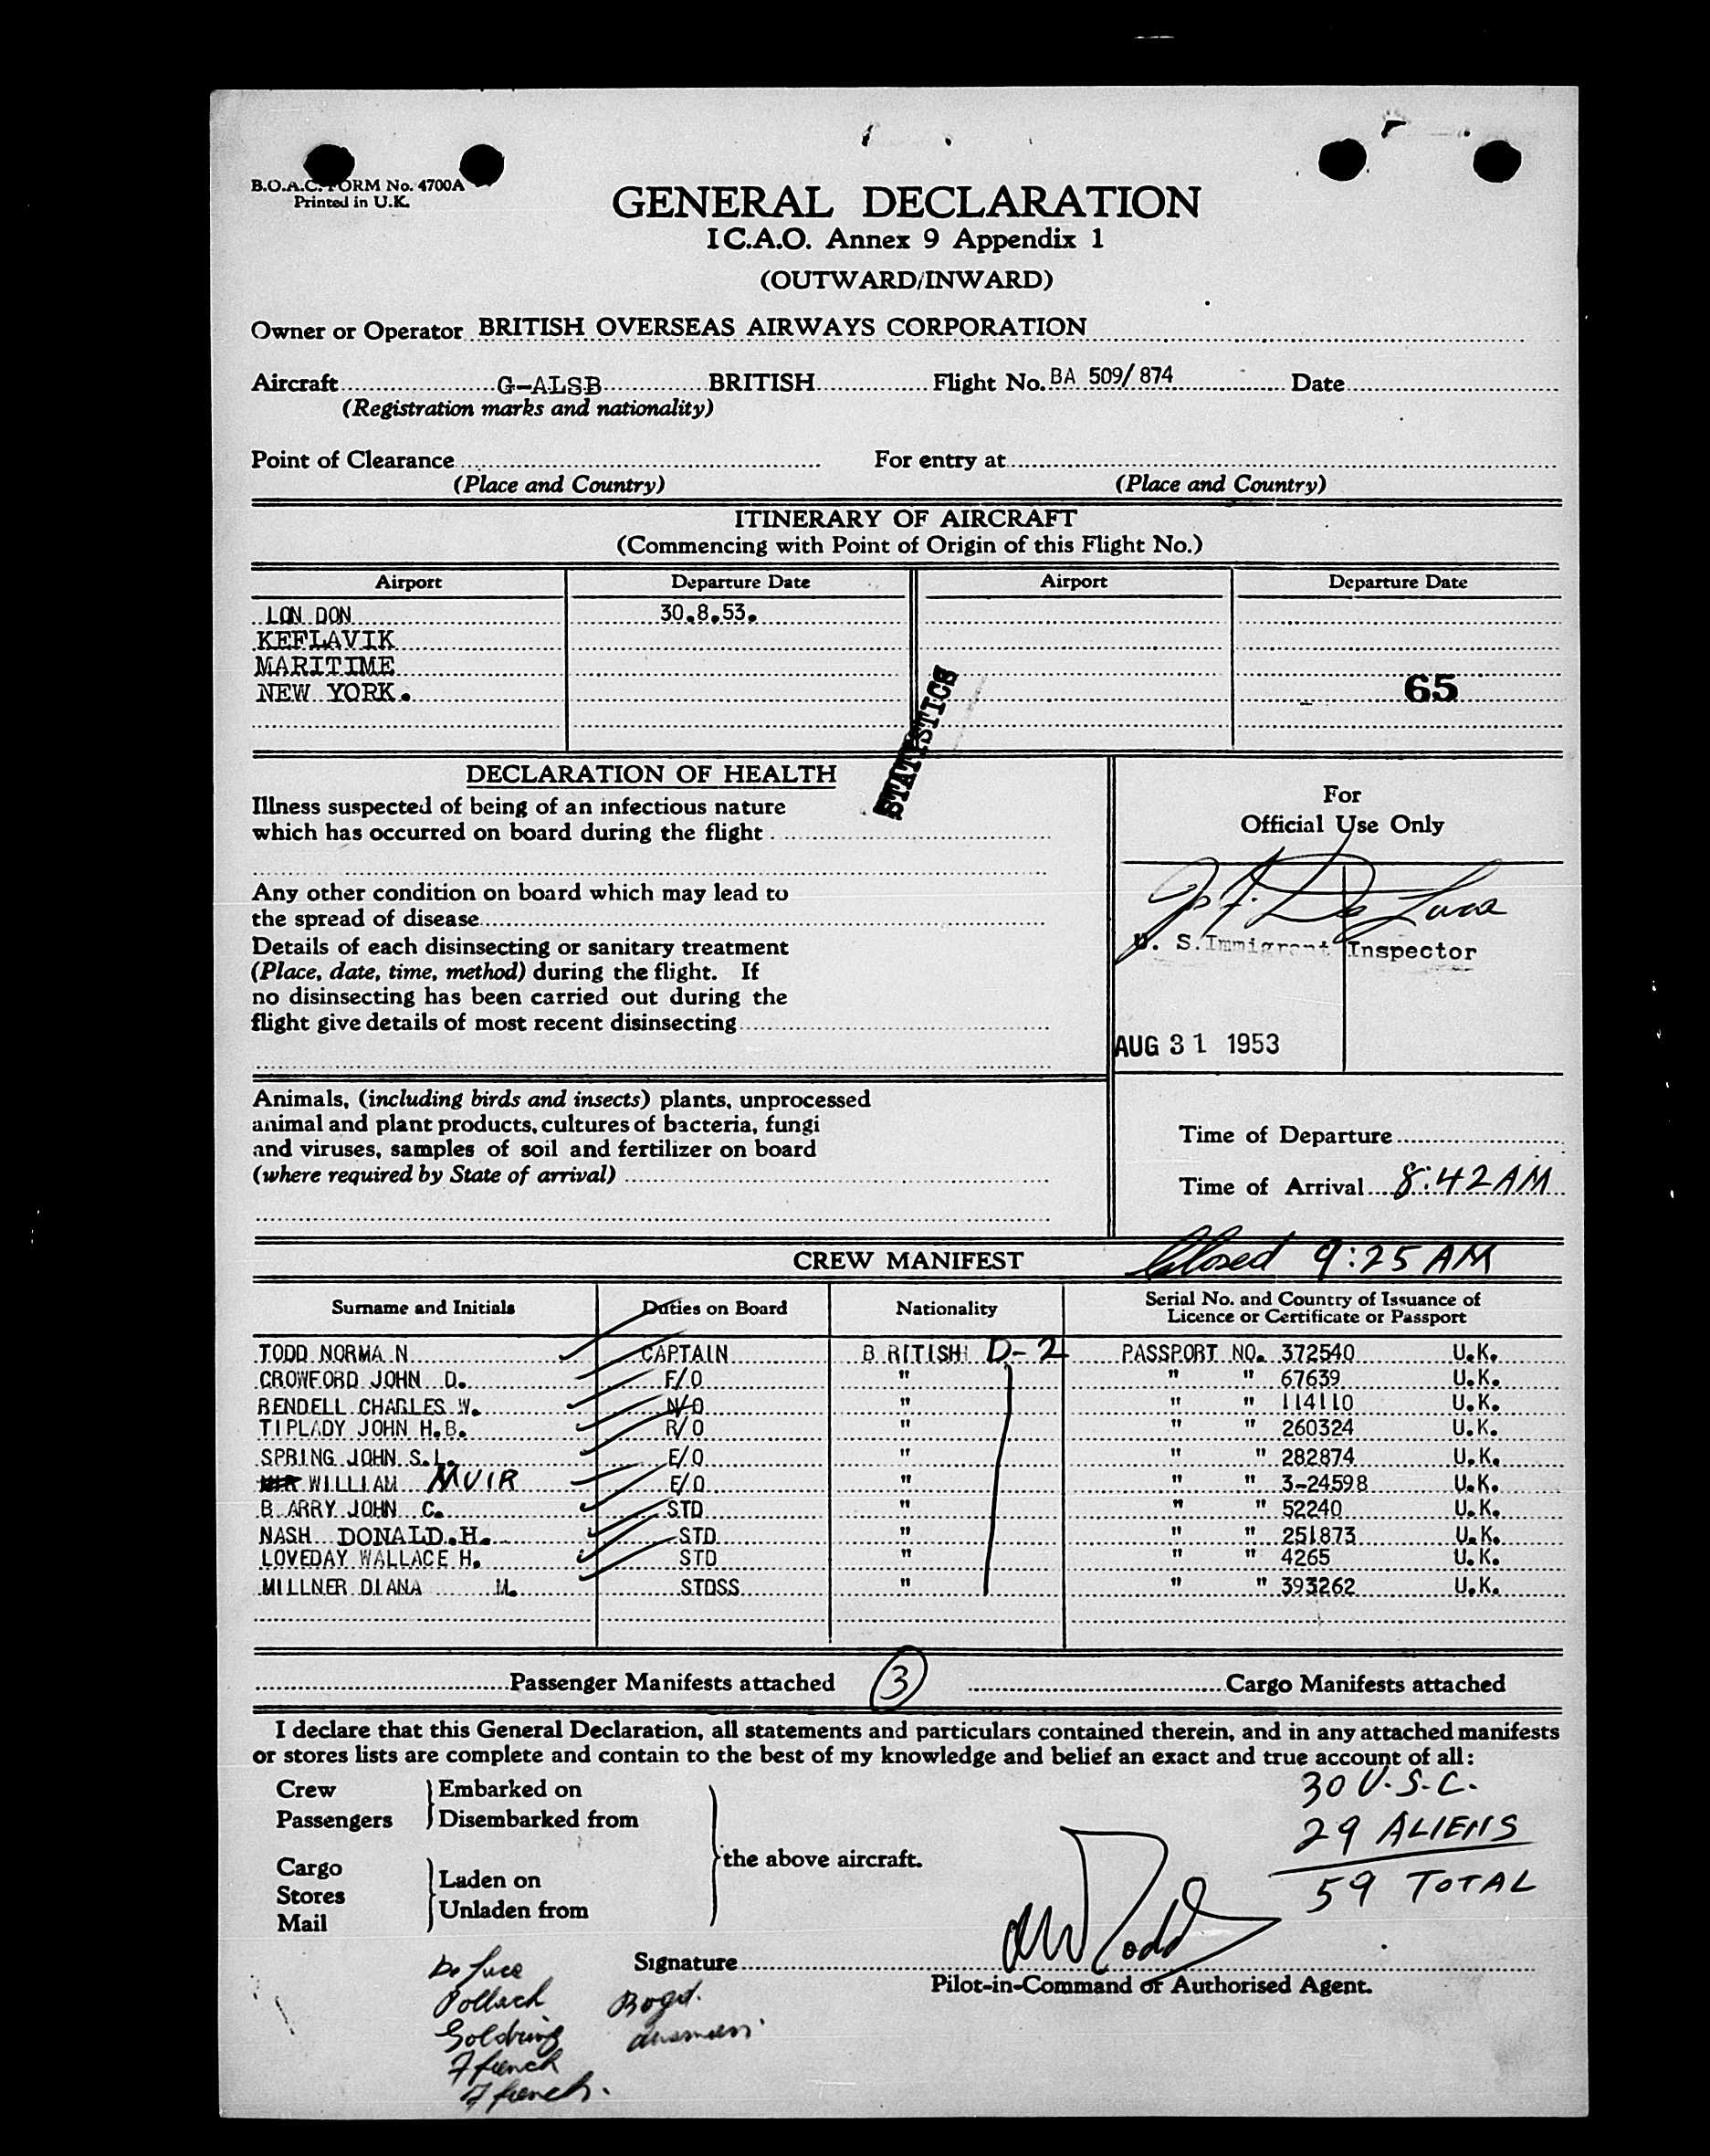 B.O.A.C. FORM No. 4700A
Printed in U.K.
GENERAL DECLARATION
I C.A.O. Annex 9 Appendix 1
(OUTWARD/INWARD)
Owner or Operator BRITISH OVERSEAS AIRWAYS CORPORATION
Aircraft G-ALSB BRITISH Flight No. BA 509/874 Date
(Registration marks and nationality)
Point of Clearance For entry at
(Place and Country) (Place and Country)
ITINERARY OF AIRCRAFT
(Commencing with Point of Origin of this Flight No.)
Airport Departure Date Airport Departure Date
LON DON 30.8.53.
KEFLAVIK
MARITIME
NEW YORK. 65
STATISTICS
DECLARATION OF HEALTH
Illness suspected of being of an infectious nature
which has occurred on board during the flight
Any other condition on board which may lead to
the spread of disease
Details of each disinsecting or sanitary treatment
(Place, date, time, method) during the flight. If
no disinsecting has been carried out during the
flight give details of most recent disinsecting
For
Official Use Only
De Luca
U. S. Immigrant Inspector
AUG 31 1953
Animals, (including birds and insects) plants, unprocessed
animal and plant products, cultures of bacteria, fungi
and viruses, samples of soil and fertilizer on board
(where required by State of arrival)
Time of Departure
Time of Arrival 8:42 AM
Closed 9:25 AM
CREW MANIFEST
Surname and Initials Duties on Board Nationality Serial No. and Country of Issuance of
Licence or Certificate or Passport
TODD NORMA N CAPTAIN B RITISH D-2 PASSPORT NO. 372540 U.K.
CROWFORD JOHN D. F/O " " " 67639 U.K.
RENDELL CHARLES W. N/O " " " 114110 U.K.
TIPLADY JOHN H.B. R/O " " " 260324 U.K.
SPRING JOHN S.L. E/O " " " 282874 U.K.
WILLIAM MUIR E/O " " " 3-24598 U.K.
B ARRY JOHN C. STD " " " 52240 U.K.
NASH DONALD.H. STD " " " 251873 U.K.
LOVEDAY WALLACE H. STD " " " 4265 U.K.
MILLNER DIANA M. STDSS " " " 393262 U.K.
Passenger Manifests attached 3 Cargo Manifests attached
I declare that this General Declaration, all statements and particulars contained therein, and in any attached manifests
or stores lists are complete and contain to the best of my knowledge and belief an exact and true account of all:
30 U.S.C.
29 ALIENS
59 TOTAL
Crew Embarked on
Passengers Disembarked from
the above aircraft.
Cargo Laden on
Stores
Mail Unladen from
Todd
Signature
Pilot-in-Command or Authorised Agent.
De Luca
Pollack
Goldring
Ffrench
Ffrench.